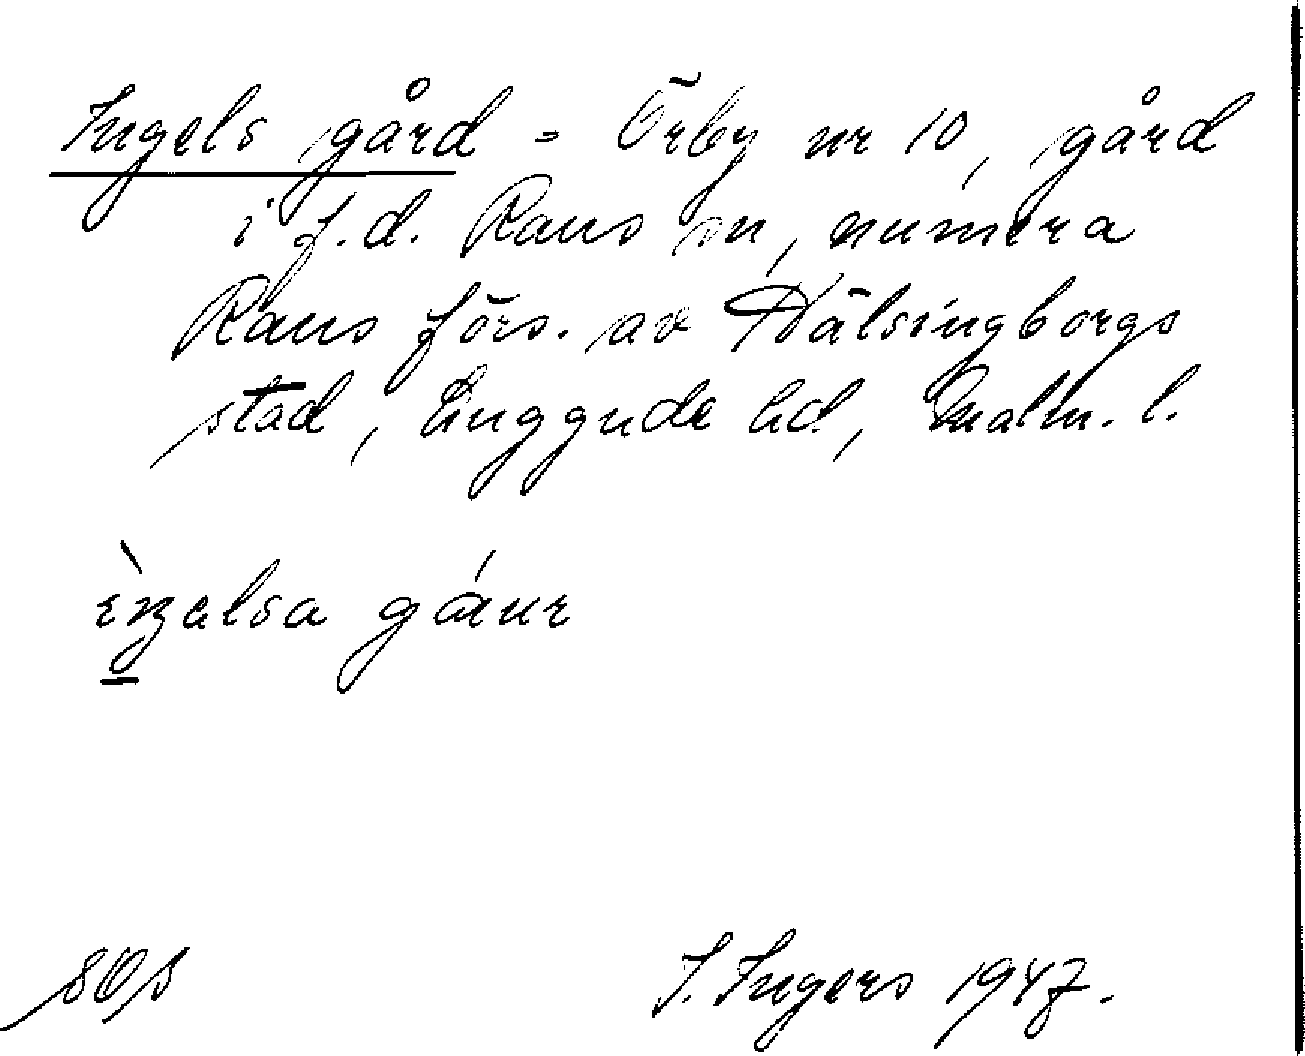 Ingels gård = Örby nr 10, gård
i f.d. Raus sn, numera
Raus förs. av Hälsingborgs
stad, Luggude hd, Malm. l.
gáur
I. Ingers 1947.